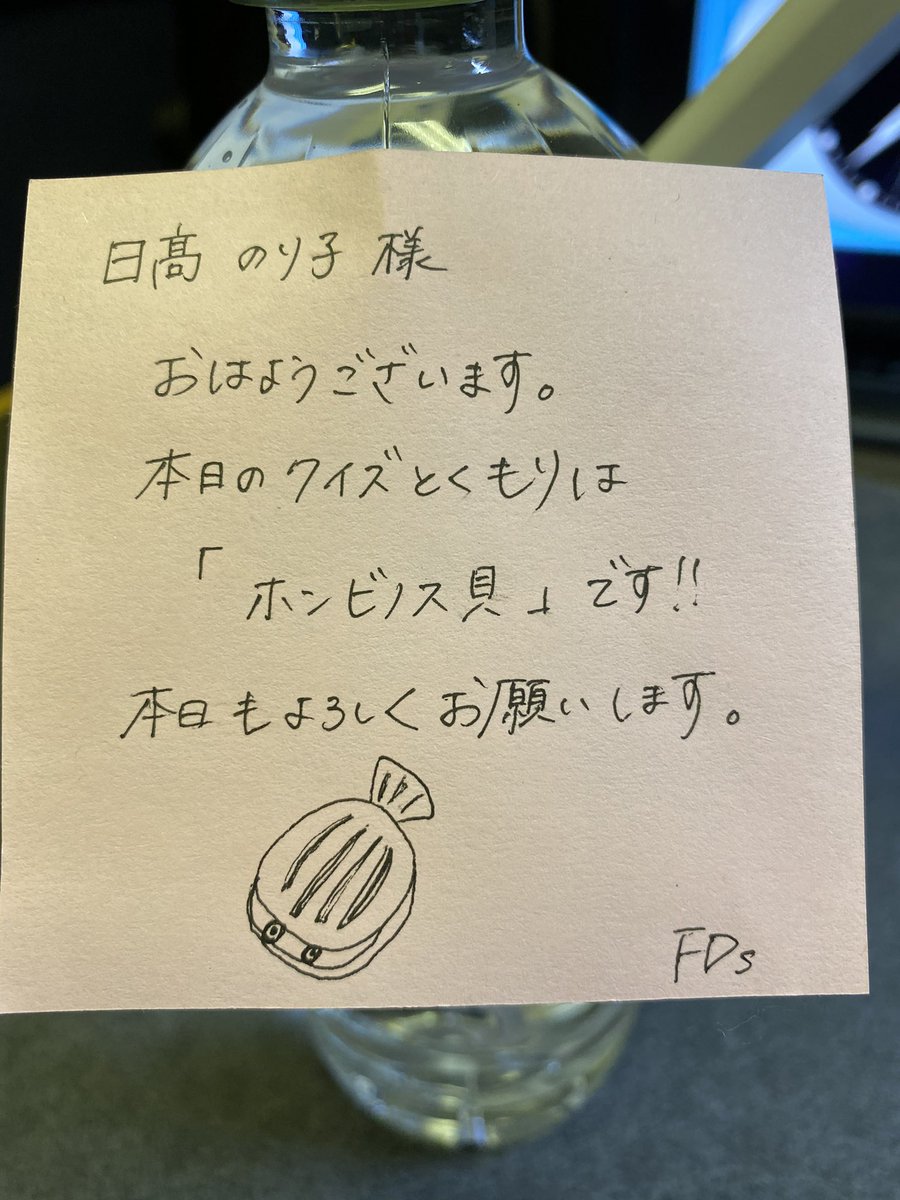 日髙 のり子 様
おはようございます。
本日のクイズとくもりは
「ホンビノス貝」です!!
本日もよろしくお願いします。
FDs